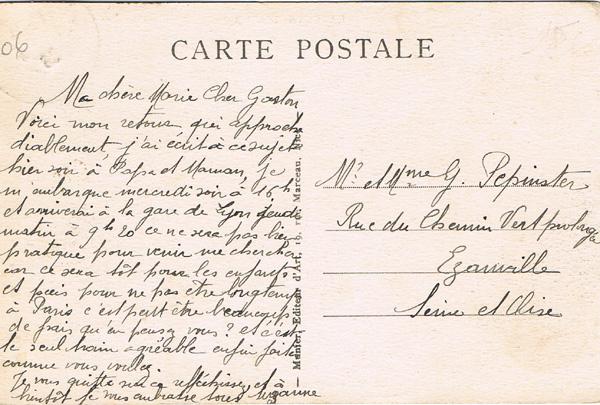 06
CARTE POSTALE
Ma chère Marie Cher Gaston
Voici mon retour qui approche
diablement, j'ai écrit à ce sujet
hier soir à Papa et Maman, je
m'embarque mercredi soir à 16h
et arriverai à la gare de Lyon jeudi
matin à 9h 20 ce ne sera pas bien
pratique pour venir me chercher
car ce sera tôt pour les enfants
et puis pour ne pas être longtemps
à Paris c'est peut être beaucoup
de frais qu'en pensez vous? et c'est
le seul train agréable enfin faites
comme vous voulez.
Je vous quitte réfléchissez, et à
bientôt je vous embrasse tous Suzanne
Munier, Editeur d'Art, rue Marceau, Nice
Mr et Mme G. Pepinster
Rue du Chemin Vert prolongé
Ezanville
Seine et Oise